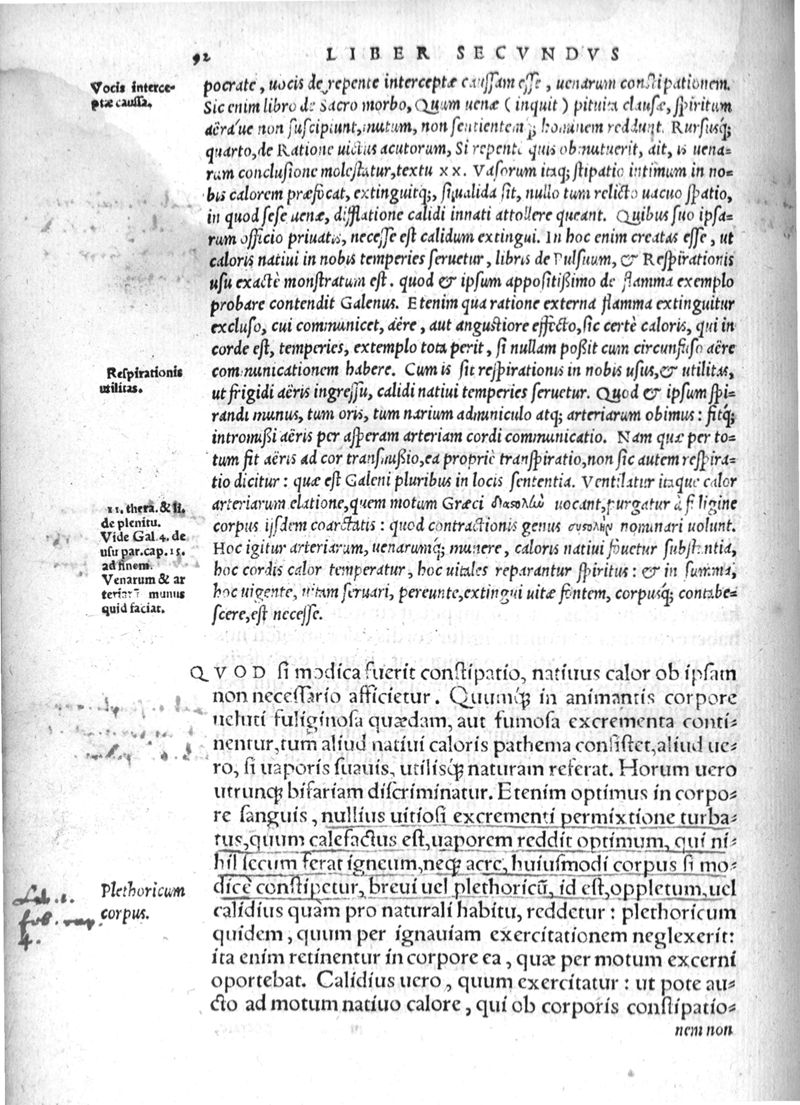 92 LIBER SECVNDVS
Vocis interce-
ptæ caussa.
pocrate, uocis de repente interceptæ caussam esse, uenarum constipationem.
Sic enim libro de Sacro morbo, Quum uenæ (inquit) pituita clausæ, spiritum
aëráue non suscipiunt, mutum, non sentientemq́; hominem reddunt. Rursusq́;
quarto, de Ratione uictus acutorum, Si repente quis obmutuerit, ait, is uena-
rum conclusione molestatur, textu xx. Vasorum itaq; stipatio intimum in no-
bis calorem præfocat, extinguitq́;, si ualida sit, nullo tum relicto uacuo spatio,
in quod sese uenæ, difflatione calidi innati attollere queant. Quibus suo ipsa-
rum officio priuatis, necesse est calidum extingui. In hoc enim creatas esse, ut
caloris natiui in nobis temperies seruetur, libris de Pulsuum, & Respirationis
usu exactè monstratum est. quod & ipsum appositißimo de flamma exemplo
probare contendit Galenus. Etenim qua ratione externa flamma extinguitur
excluso, cui communicet, aëre, aut angustiore effecto, sic certè caloris, qui in
corde est, temperies, extemplo tota perit, si nullam poßit cum circunfuso aëre
Respirationis
utilitas.
communicationem habere. Cum is sit respirationis in nobis usus, & utilitas,
ut frigidi aëris ingressu, calidi natiui temperies seruetur. Quod & ipsum spi-
randi munus, tum oris, tum narium adminiculo atq; arteriarum obimus: fitq́;
intromißi aëris per asperam arteriam cordi communicatio. Nam quæ per to-
tum fit aëris ad cor transmißio, ea propriè transpiratio, non sic autem respira-
tio dicitur: quæ est Galeni pluribus in locis sententia. Ventilatur itaque calor
11. thera. & li.
de plenitu.
Vide Gal. 4. de
usu par. cap. 15.
ad finem.
Venarum & ar
teriarū munus
quid faciat.
arteriarum elatione, quem motum Græci διαστολὼ uocant, purgatur à fuligine
corpus ijsdem coarctatis: quod contractionis genus συστολὴν nominari uolunt.
Hoc igitur arteriarum, uenarumq́; munere, caloris natiui fouetur substantia,
hoc cordis calor temperatur, hoc uitales reparantur spiritus: & in summa,
hoc uigente, uitam seruari, pereunte, extingui uitæ fontem, corpusq́; contabe-
scere, est necesse.
QVOD si modica fuerit constipatio, natiuus calor ob ipsam
non necessario afficietur. Quumq́; in animantis corpore
ueluti fuliginosa quædam, aut fumosa excrementa conti-
nentur, tum aliud natiui caloris pathema consistet, aliud ue-
ro, si uaporis suauis, utilisq́; naturam referat. Horum uero
utrunq; bifariam discriminatur. Etenim optimus in corpo-
re sanguis, nullius uitiosi excrementi permixtione turba-
tus, quum calefactus est, uaporem reddit optimum, qui ni-
hil secum ferat igneum, neq; acre, huiusmodi corpus si mo-
Plethoricum
corpus.
dicè constipetur, breui uel plethoricū, id est, oppletum, uel
calidius quàm pro naturali habitu, reddetur: plethoricum
quidem, quum per ignauiam exercitationem neglexerit:
ita enim retinentur in corpore ea, quæ per motum excerni
oportebat. Calidius uero, quum exercitatur: ut pote au-
cto ad motum natiuo calore, qui ob corporis constipatio-
nem non